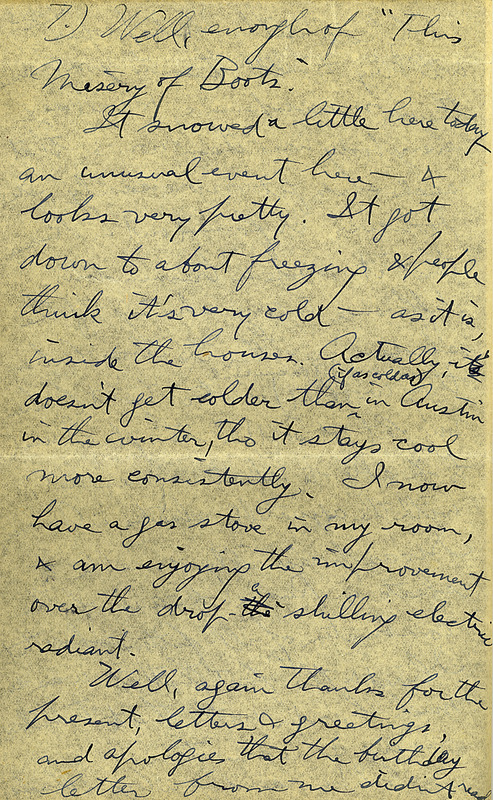 7.) Well, enough of "This
Misery of Boots."
It snowed a little here today
an unusual event here — &
looks very pretty. It got
down to about freezing & people
think it's very cold — as it is,
inside the houses. Actually, it
(if as cold as)
doesn't get colder than in Austin
in the winter, tho it stays cool
more consistently. I now
have a gas stove in my room,
& am enjoying the improvement
over the drop-a shilling electric
radiant.
Well, again thanks for the
present, letters & greetings,
and apologies that the birthday
letter from me didn't